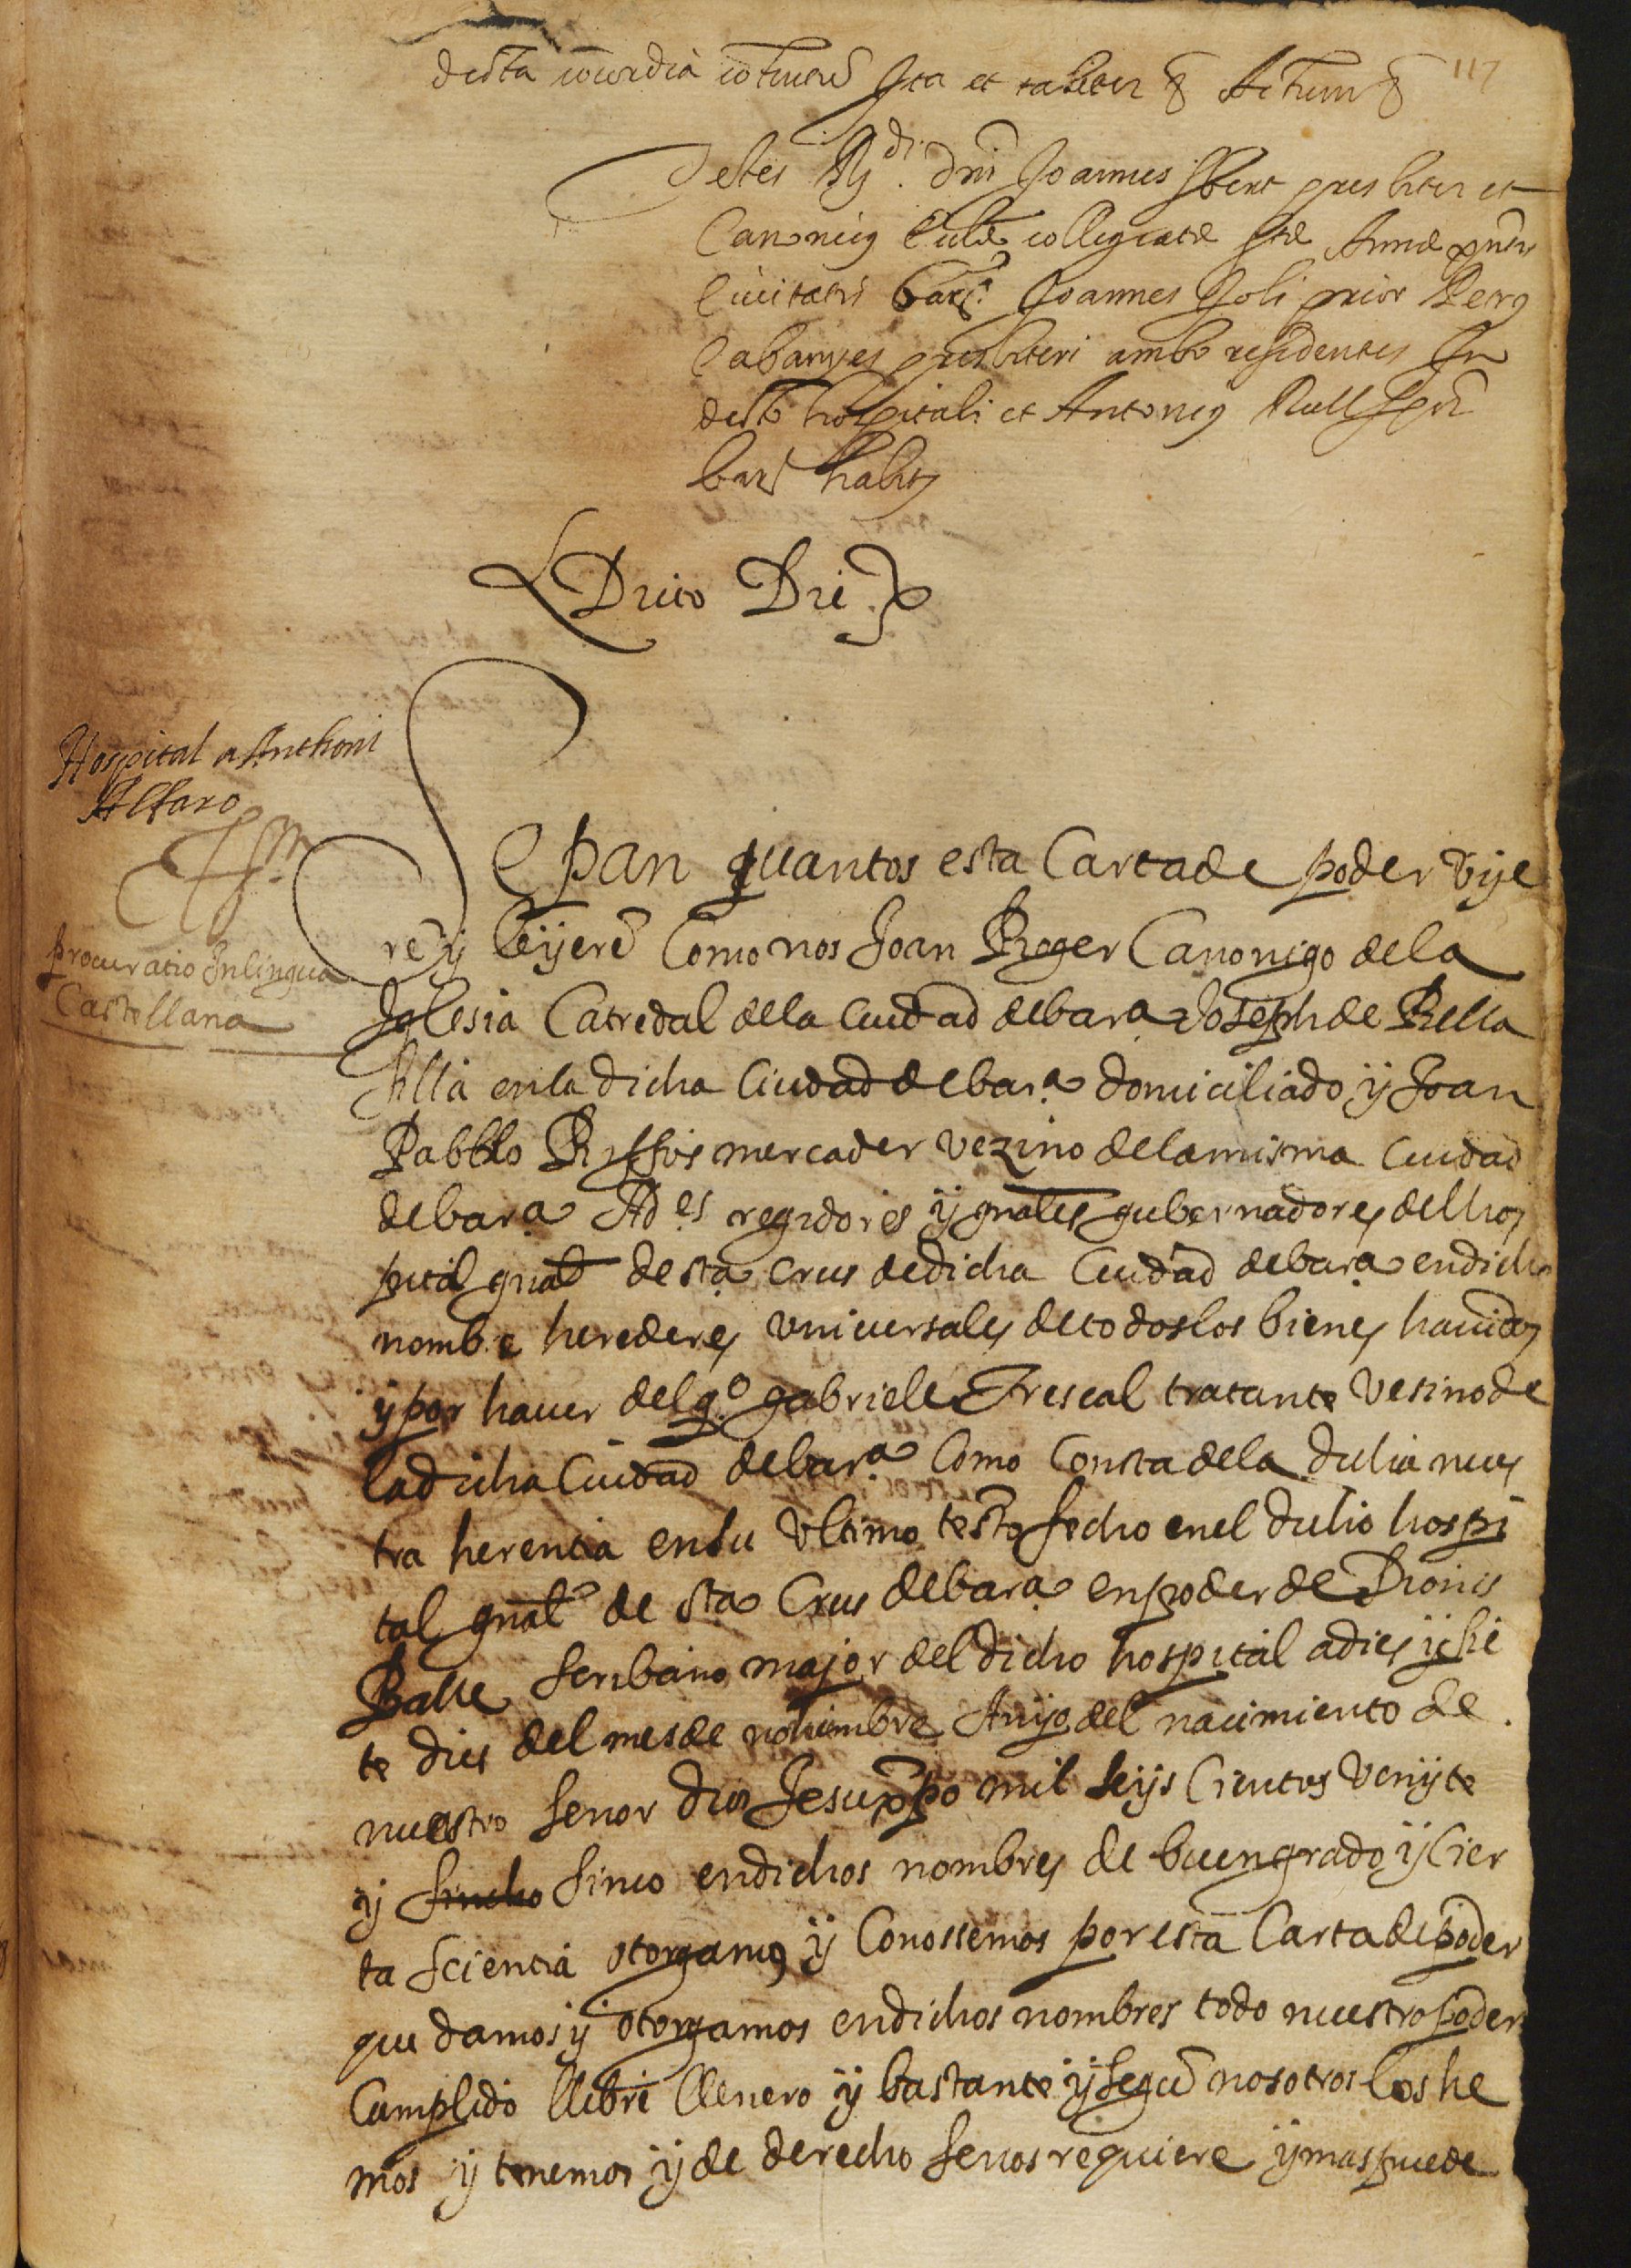 117
dicta concordia
Ita et taliter Actum
Testes Rdi. dni Joannes presbiter et
Canonicus collegiate ste Anne
Civitatis Barᵃ. Joannes prior
Cabanyes presbiteri ambo residentes In
dicto hospitali et Antonius
bar habit
Dnico Die
Hospital a Anthoni
Alfaro
procuratio In lingua
Castellana
Sepan quantos esta Carta de poder vije
rē y leijerē Como nos Joan Roger Canonigo dela
Iglesia Catredal dela Ciudad de barᵃ Joseph de Bella
filla en la dicha Ciudad de barᵃ domiciliado ÿ Joan
Pabblo mercader vezino dela misma Ciudad
de barᵃ Adᵉˢ regidores ÿ gnales gubernadores del hos
pital gnal de stᵃ Crus de dicha Ciudad de barᵃ en dicho
nombre herederes universales de todos los bienes havidos
ÿ por haver del qᵒ gabriele Frescal tratante vesino de
la dicha Ciudad de barᵃ Como Consta dela dicha nues
tra herencia en su ultimo testo fecho en el dicho hospi
tal gnal de sta Crus de barᵃ en poder de Dionis
Balle scribano major del dicho hospital a dies ÿ sie
te dies del mes de nohiembre Anyo del nacimiento de
nuestro senor dios Jesu xpo mil seijs Cientos venijte
ÿ sincho sinco en dichos nombres de buen grado ÿ Cier
ta sciencia otorgamos ÿ Conossemos por esta Carta de poder
que damos ÿ otorgamos en dichos nombres todo nuestro poder
Cumplido llibre llenero ÿ bastante ÿ segū nosotros los he
mos ÿ tenemos ÿ de derecho se nos requiere ÿ mas puede